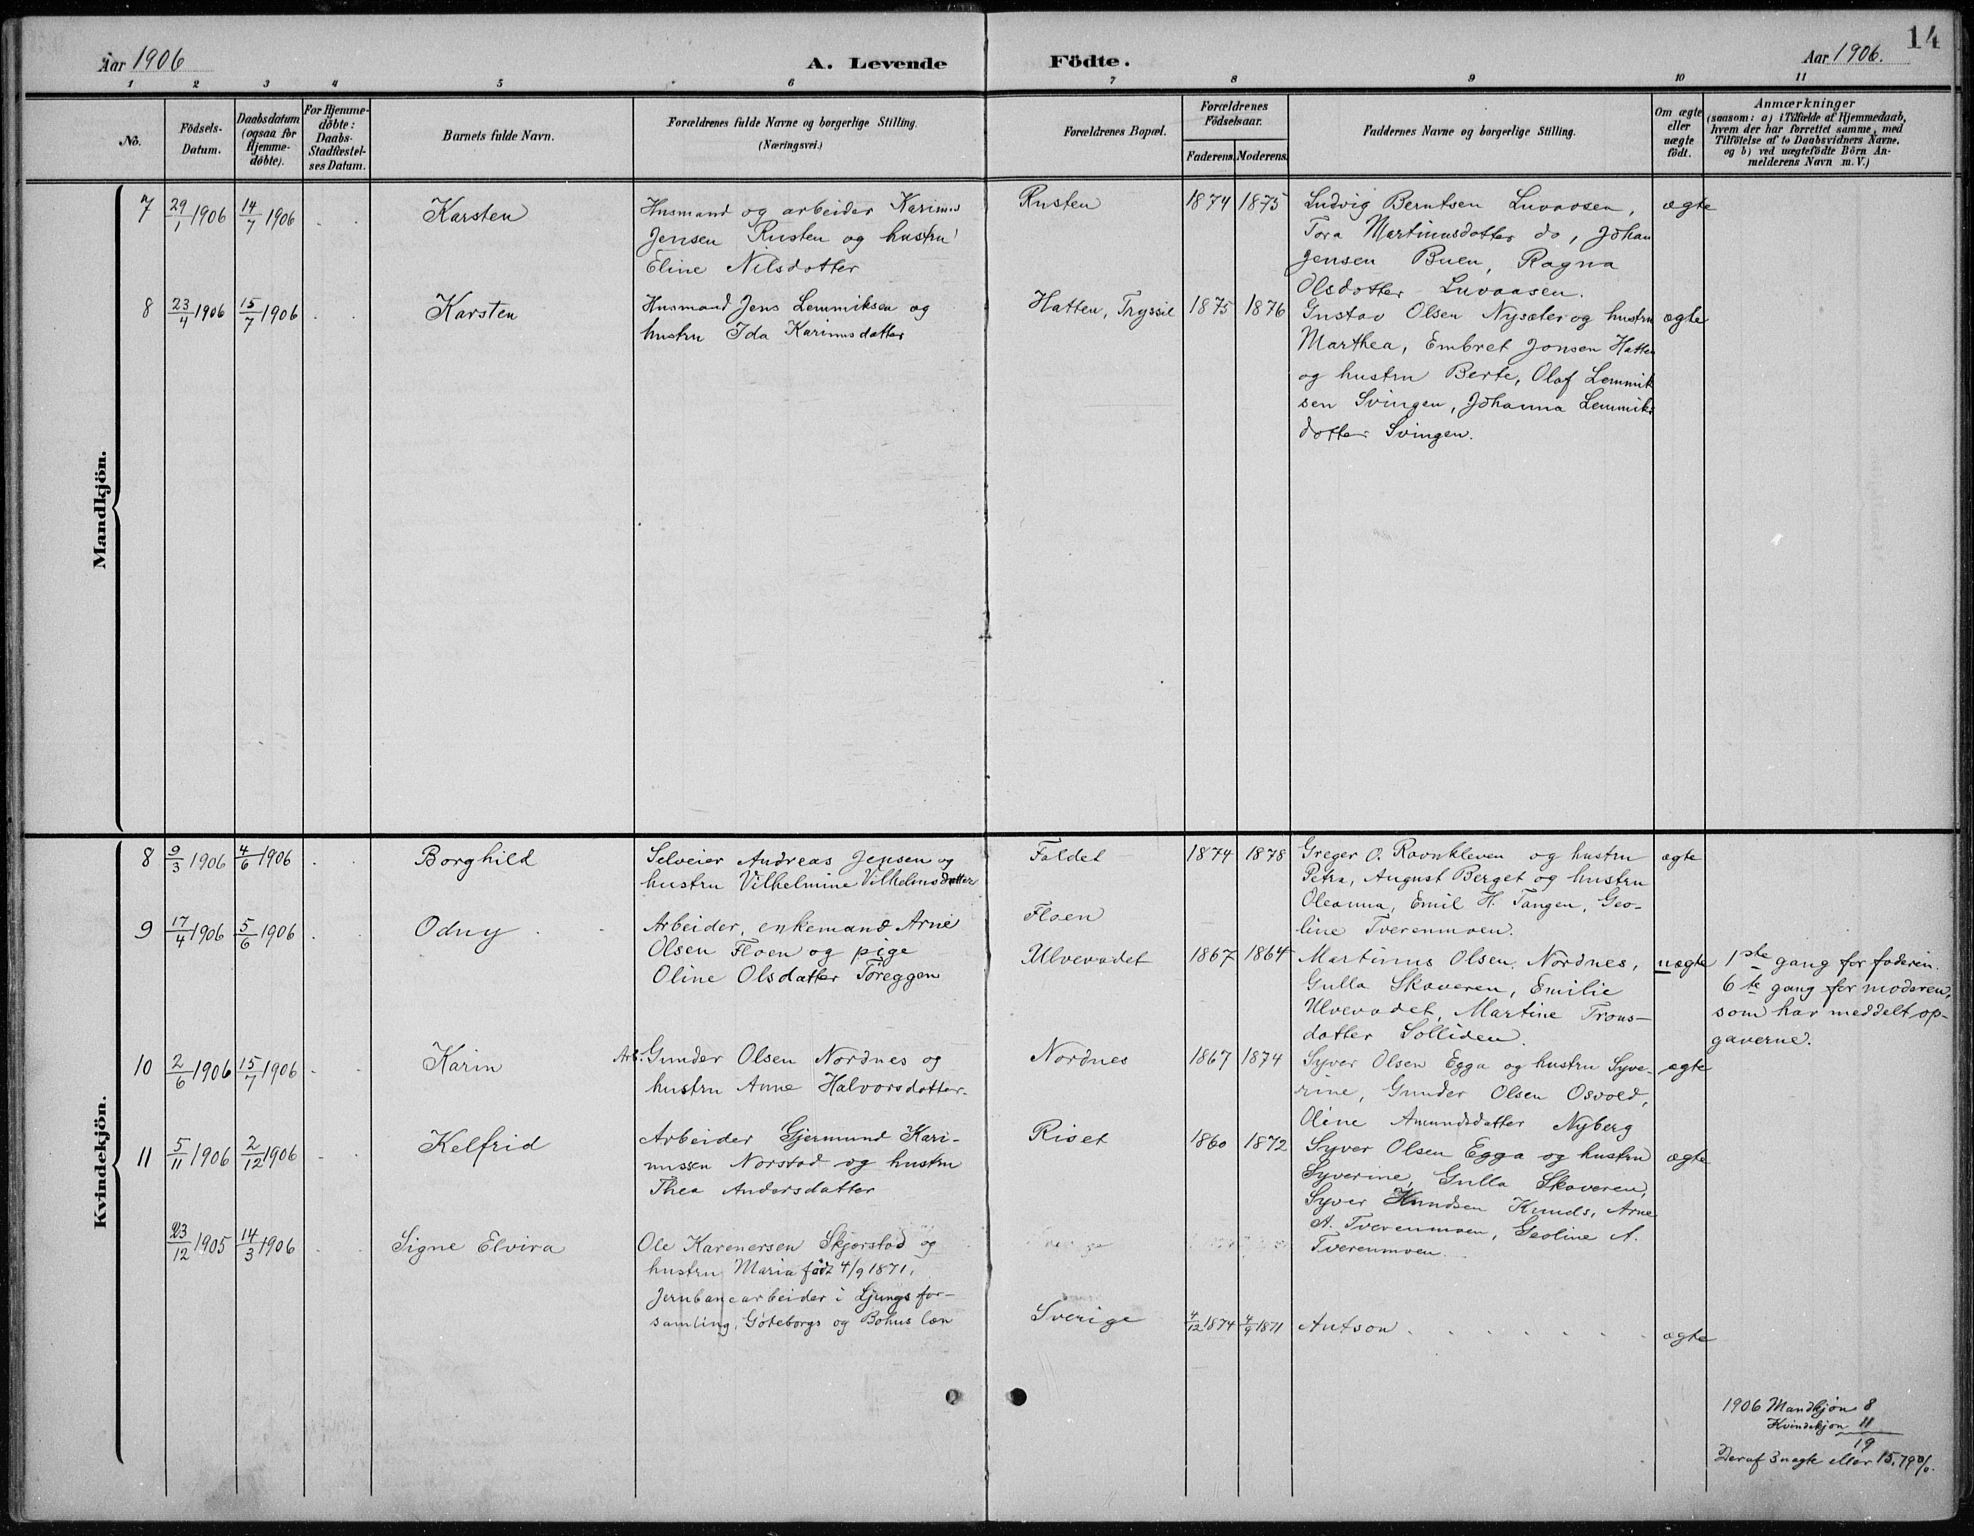 14
Aar 1906
A. Levende Födte.
Aar 1906.
1 2 3 4 5 6 7 8 9 10 11
No.
Födsels-
Datum.
Daabsdatum
(ogsaa for
Hjemme-
döbte).
For Hjemme-
döbte:
Daabs-
Stadfæstel-
ses Datum.
Barnets fulde Navn.
Forældrenes fulde Navne og borgerlige Stilling.
(Næringsvei.)
Forældrenes Bopæl.
Forældrenes
Födselsaar.
Faderens. Moderens.
Faddernes Navne og borgerlige Stilling.
Om ægte
eller
uægte
födt.
Anmærkninger
(saasom: a) i Tilfælde af Hjemmedaab,
hvem der har forrettet samme, med
Tilföielse af to Daabsvidners Navne,
og b) ved uægtefödte Börn An-
melderens Navn m. V.)
Mandkjön.
7 29/1 1906 14/7 1906 Karsten
Husmand og arbeider Karinus
Jensen Rusten og hustru
Eline Nilsdotter
Rusten 1874 1875
Ludvig Berntsen Luvaasen,
Tora Martinusdotter do, Johan
Jensen Buen, Ragna
Olsdotter Luvaasen.
ægte
8 23/4 1906 15/7 1906 Karsten
Husmand Jens Lemmiksen og
hustru Ida Karinusdatter
Hatten, Tryssil 1875 1876
Gustav Olsen Nysæter og hustru
Marthea, Embret Jonsen Hatten
og hustru Berte, Olaf Lemmik
sen Svingen, Johanna Lemmiks
dotter Svingen.
ægte
Kvindekjön.
8 9/3 1906 4/6 1906 Borghild
Selveier Andreas Jensen og
hustru Vilhelmine Vilhelmsdatter
Foldet 1874 1878
Greger O. Ravnkleven og hustru
Petra, August Berget og hustru
Oleanna, Emil H. Tangen, Geo-
line Tverenmoen.
ægte
9 17/4 1906 5/6 1906 Odny
Arbeider, enkemand Arne
Olsen Floen og pige
Oline Olsdatter Töreggen
Floen
Ulvevadet 1867 1864
Martinus Olsen Nordnes,
Gulla Skaveren, Emilie
Ulvevadet, Martine Trons-
datter Solliden.
uægte
1ste gang for faderen.
6te gang for moderen,
som har meddelt op-
gaverne.
10 2/6 1906 15/7 1906 Karin
Arb. Gunder Olsen Nordnes og
hustru Anne Halvorsdatter.
Nordnes 1867 1874
Syver Olsen Egga og hustru Syve-
rine, Gunder Olsen Osvold,
Oline Amundsdatter Nyberg
ægte
11 5/11 1906 2/12 1906 Kelfrid
Arbeider Gjermund Kari-
nussen Norstad og hustru
Thea Andersdatter
Riset 1860 1872
Syver Olsen Egga og hustru
Syverine, Gulla Skaveren,
Syver Knudsen Knuds, Arne
A. Tverenmoen, Geoline A.
Tverenmoen.
ægte
23/12 1905 14/3 1906 Signe Elvira
Ole Karenersen Skjorstad og
hustru Maria född 4/9 1871,
Jernbanearbeider i Ljungs for-
samling, Göteborgs og Bohus læn
Sverige 4/12 1874 4/9 1871
Antson
ægte
1906 Mandkjön 8
Kvindekjön 11
19
Deraf 3 uægte eller 15,79 %.